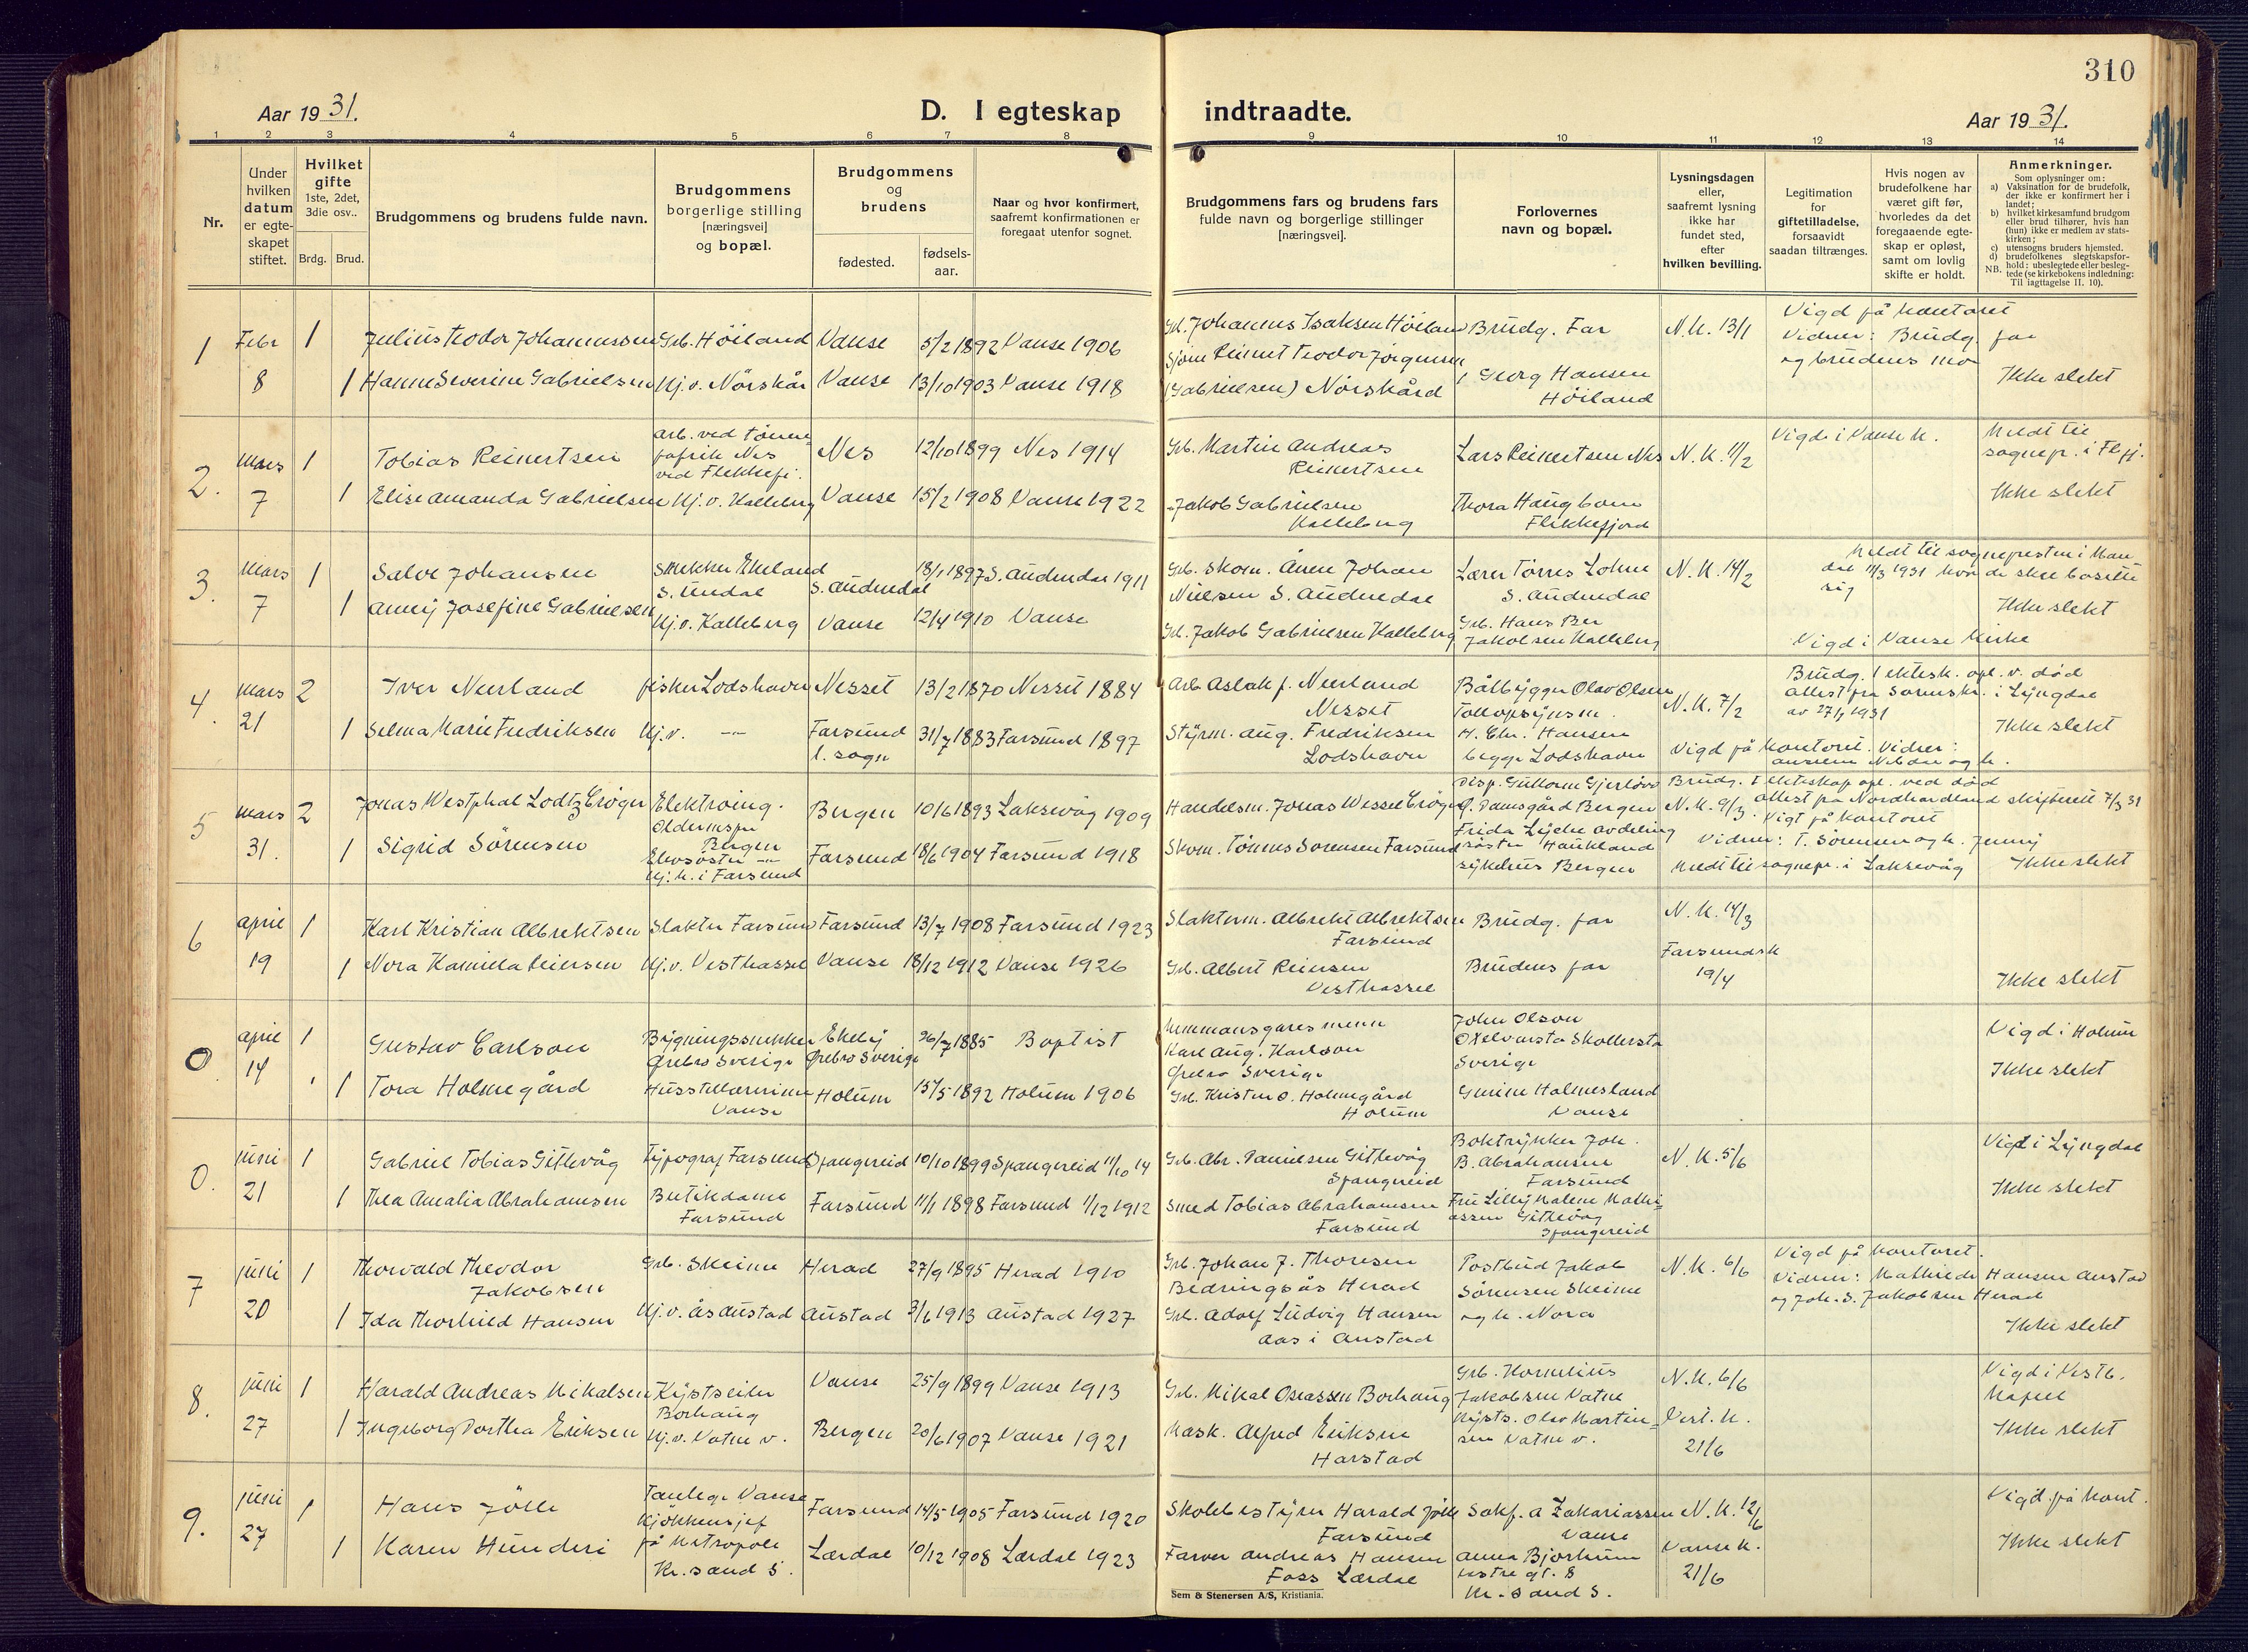 310
Aar 1931.
D. I egteskap indtraadte.
Aar 1931.
1 2 3 4 5 6 7 8 9 10 11 12 13 14
Nr.
Under hvilken datum er egte-skapet stiftet.
Hvilket gifte 1ste, 2det, 3die osv..
Brdg. Brud.
Brudgommens og brudens fulde navn.
Brudgommens borgerlige stilling [næringsvei] og bopæl.
Brudgommens og brudens
fødested.
fødsels-aar.
Naar og hvor konfirmert, saafremt konfirmationen er foregaat utenfor sognet.
Brudgommens fars og brudens fars fulde navn og borgerlige stillinger [næringsvei].
Forlovernes navn og bopæl.
Lysningsdagen eller, saafremt lysning ikke har fundet sted, efter hvilken bevilling.
Legitimation for giftetilladelse, forsaavidt saadan tiltrænges.
Hvis nogen av brudefolkene har været gift før, hvorledes da det foregaaende egte-skap er opløst, samt om lovlig skifte er holdt.
Anmerkninger.
Som oplysninger om:
a) Vaksination for de brudefolk, der ikke er konfirmert her i landet;
b) hvilket kirkesamfund brudgom eller brud tilhører, hvis han (hun) ikke er medlem av stats-kirken;
c) utensogns bruders hjemsted.
d) brudefolkenes slegtskapsfor-hold: ubeslegtede eller besleg-tede (se kirkebokens indledning:
NB. Til iagttagelse II. 10).
1 Febr 8
1 Julius Teodor Johannessen Grb. Höiland Vanse 5/2 1892 Vanse 1906
1 Hanne Severine Gabrielsen Hj.v. Nörskår Vanse 13/10 1903 Vanse 1918
Grb. Johannes Isaksen Höiland
Sjöm Reinert Teodor Jörgensen
(Gabrielsen) Nörskård
Brudg. Far
Georg Hansen
Höiland
N.K. 13/1
Vigd på kontoret
Vidner: Brudg. far
og brudens mor
Ikke slekt
2. mars 7
1 Tobias Reinertsen
Arb. ved tönne-
fabrik Nes
ved Flekkefj.
Nes 12/10 1899 Nes 1914
1 Elise Amanda Gabrielsen Hj.v. Kalleberg Vanse 15/2 1908 Vanse 1922
Grb. Martin Andreas
Reinertsen
Jakob Gabrielsen
Kalleberg
Lars Reinertsen Nes
Thora Haugbom
Flekkefjord
N.K. 11/2
Vigde i Vanse k.
Meldt til
sognepr. i Flfj.
Ikke slekt
3. mars 7
1 Salve Johansen
Snekker Ekeland
S. Undal
S. Audnedal 18/1 1897 S. Audnedal 1911
1 Anny Josefine Gabrielsen Hj.v. Kalleberg Vanse 12/4 1910 Vanse
Grb. skom. Anen Johan
Nielsen S. Audnedal
Grb. Jakob Gabrielsen Kalleberg
Lærer Törres Lohne
S. Audnedal
Grb. Hans Per
Jakobsen Kalleberg
N.K. 14/2
Meldt til sognepresten i Man
dal 11/3 1931 hvor de skal bosette
sig
Ikke slekt
Vigd i Vanse kirke
4. mars 21
2 Iver Neerland fisker Lodshavn Nesset 13/2 1870 Nesset 1884
1 Selma Marie Fredriksen Hj.v. -"- Farsund l. sogn 31/7 1883 Farsund 1897
Arb. Aslak J. Neerland
Nesset
Styrm. Aug. Fredriksen
Lodshavn
Båtbygger Olav Olsen
Tollopsynsm.
H. Chr. Hansen
begge Lodshavn
N.K. 7/2
Brudg. 1 ektesk. opl. v. död
attest fra Sorenskr. i Lyngdal
av 27/1 1931
Ikke slekt
Vigd på kontoret. Vidner:
5 mars 31.
2 Jonas Westphal Lodtz Cröger
Elektroing.
Bergen
Bergen 10/6 1893 Laksevåg 1909
1 Sigrid Sörensen
Hj.h. i Farsund
Farsund 18/6 1904 Farsund 1918
Handelsm. Jonas Wessel Cröger
Skom. Tönnes Sörensen Farsund
Disp. Guttorm Gjerlöw
Damsgård Bergen
Frida Lycke avdeling
söster Haukland
sykehus Bergen
N.K. 9/3
Brudg. 1 ekteskap opl. ved död
attest fra Nordhordland skifterett 7/3 31
Vigt på kontoret
Vidner: T. Sörensen og h. Jenny
Meldt til sognepr. i Laksevåg
Ikke slekt
6 april 19
1 Karl Kristian Albrektsen Slakter Farsund Farsund 13/7 1908 Farsund 1923
1 Nora Kamilla Reiersen Hj.v. Vesthassel Vanse 18/12 1912 Vanse 1926
Slakterm. Albrekt Albrektsen
Farsund
Grb. Albert Reiersen
Vesthassel
Brudg. far
Brudens far
N.K. 14/3
Farsunds k
19/4
Ikke slekt
0 april 14
1 Gustav Carlson
Bygningssnekker
Örebro Sverige
Ekeby
Örebro Sverige
26/7 1885 Baptist
1 Tora Holmegård
Husstellærerinne
Vanse
Holum 15/5 1892 Holum 1906
Karl Aug. Karlson
Örebro Sverige
Grb. Kristen O. Holmegård
Holum
John Olson
Sverige
Gurine Holmesland
Vanse
Vigd i Holum
Ikke slekt
0. juni 21
1 Gabriel Tobias Gitlevåg Typograf Farsund Spangereid 10/10 1899 Spangereid 11/10 14
1 Thea Amalia Abrahamsen
Butikdame
Farsund
Farsund 11/1 1898 Farsund 1/12 1912
Grb. Abr. Danielsen Gitlevåg
Spangereid
Smed Tobias Abrahamsen
Farsund
Boktrykker Joh.
B. Abrahamsen
Farsund
Fru Lilly Malene Mathi-
assen Gitlevåg
Spangereid
N.K. 5/6
Vigd i Lyngdal
Ikke slekt
7 juni 20
1 Thorvald Theodor
Jakobsen
Grb. Skeime Herad 27/9 1895 Herad 1910
1 Ida Thorhild Hansen Hj.v. Ås Austad Austad 3/6 1913 Austad 1927
Grb. Johan J. Thoresen
Bedringsås Herad
Grb. Adolf Ludvig Hansen
Aas i Austad
Postbud Jakob
Sörensen Skeime
og h. Nora
N.K. 6/6
Vigd på kontoret.
Vidner: Mathilde Hansen Austad
og Joh. S. Jakobsen Herad
Ikke slekt
8. juni 27
1 Harald Andreas Mikalsen
Kystseiler
Borhaug
Vanse 25/9 1899 Vanse 1913
1 Ingeborg Dorthea Eriksen Hj.v. Vatne v. Bergen 20/6 1907 Vanse 1921
Grb. Mikal Oseassen Borhaug
Mask. Alfred Eriksen
Harstad
Grb. Kornelius
Jakobsen Vatne
Kysts. Olav Martin-
sen Vatne v.
N.K. 6/6
Vest. k.
21/6
Vigd i Vestb.
kapell
Ikke slekt
9. juni 27
1 Hans Jölle Tannlege Vanse Farsund 14/5 1905 Farsund 1920
1 Karen Hunderi
Kjökkensjef
på Metropole
Kr.sand S.
Lærdal 10/12 1908 Lærdal 1923
Skolebestyrer Harald Jölle
Farsund
Farver Andreas Hansen
Foss Lærdal
Sakf. A Zakariassen
Vanse
Anna Bjorhum
Kr.sand S.
N.K. 12/6
Vanse k.
21/6
Vigd på kont.
Ikke slekt
Sem & Stenersen A/S, Kristiania.